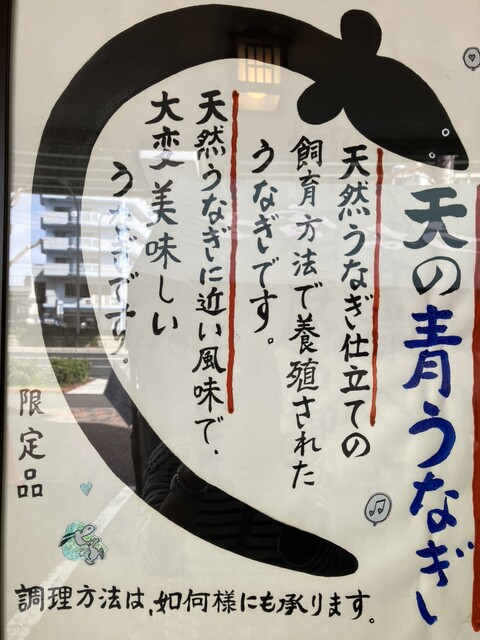 天の青うなぎ
天然うなぎ仕立ての
飼育方法で養殖された
うなぎです。
天然うなぎに近い風味で、
大変美味しい
うなぎです。
限定品
調理方法は、如何様にも承ります。